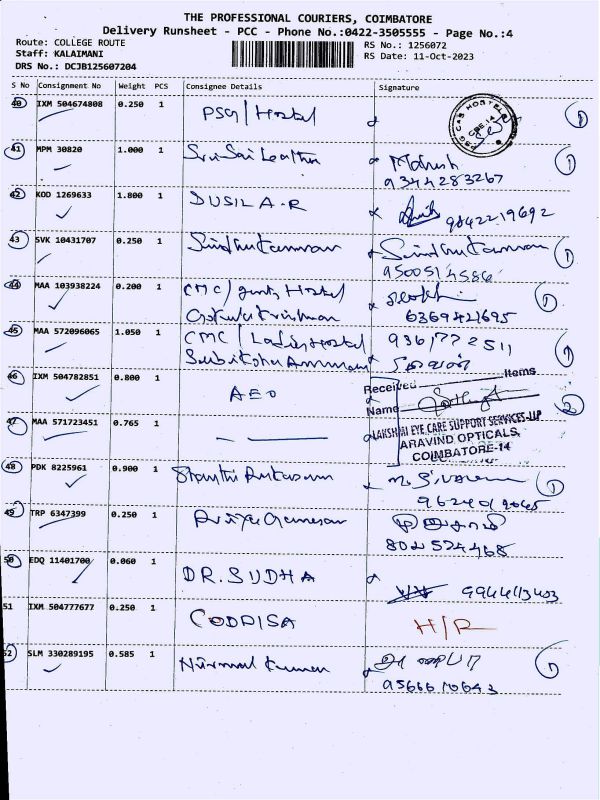 THE PROFESSIONAL COURIERS, COIMBATORE
Delivery Runsheet - PCC - Phone No.:0422-3505555 - Page No.:4
Route: COLLEGE ROUTE
RS No.: 1256072
Staff: KALAIMANI
RS Date: 11-Oct-2023
DRS No.: DCJB125607204
S No Consignment No Weight PCS Consignee Details Signature
40 IXM 504674808 0.250 1 PSG/Hostel 1
PSG CAS HOSTELS
CBE-14
41 MPM 30820 1.000 1 Sri Sai Leather Mahesh 1
9344283267
42 KOD 1269633 1.800 1 DUSIL A.R
9842219692
43 SVK 10431707 0.250 1 Sindhu Kannan Sindhu Kannan 1
44 MAA 103938224 0.200 1 CMC/ gents Hostel 1
Gokula Krishnan 6369421695
45 MAA 572096065 1.050 1 CMC / Ladies Hostel 9361772511 1
46 IXM 504782851 0.800 1 AEO 2
Received Items
Name
LAKSHMI EYE CARE SUPPORT SERVICES-LLP
ARAVIND OPTICALS,
COIMBATORE-14
47 MAA 571723451 0.765 1
48 PDK 8225961 0.900 1 1
49 TRP 6347399 0.250 1 Priya Ganesan
50 EDQ 11401700 0.060 1 DR. SUDHA
51 IXM 504777677 0.250 1 CODDISA H/R
52 SLM 330289195 0.585 1 Nirmal Kumar 1